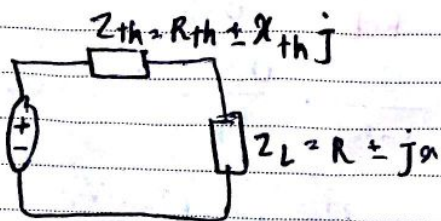 Zth = Rth ± Xth j
+
-
ZL = R ± jx